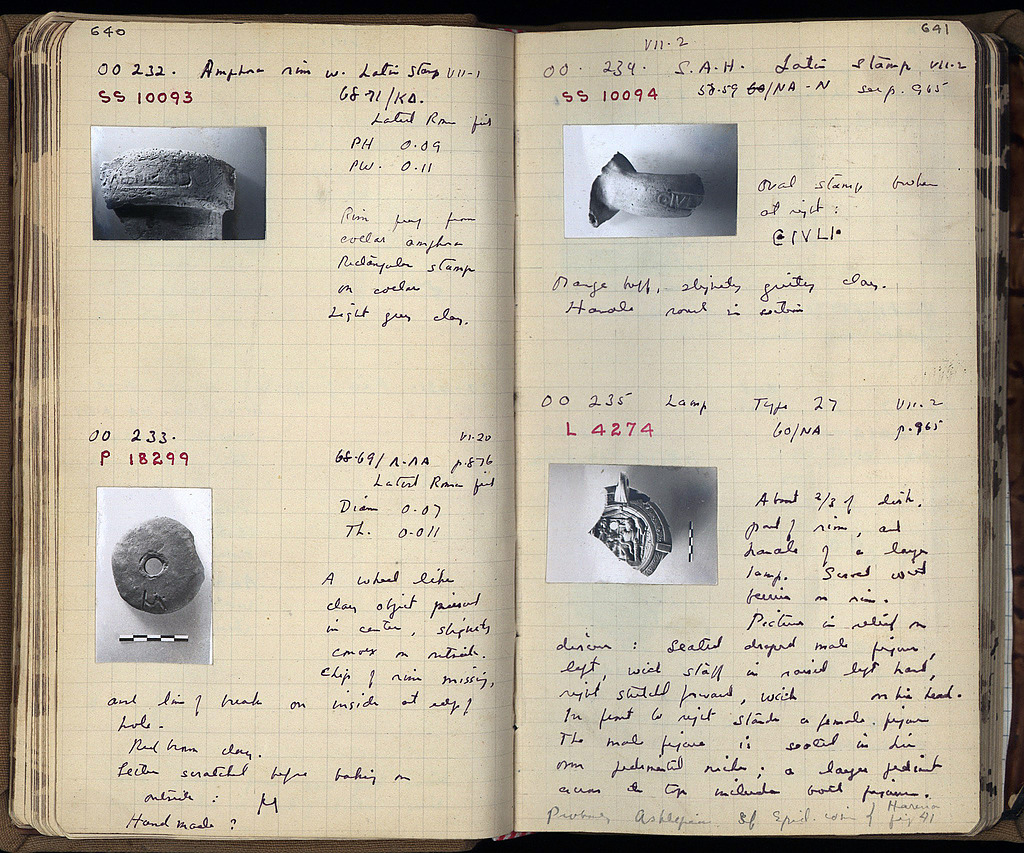 640
OO 232. Amphora rim w. Latin Stamp VII-1
SS 10093
68-71/KΔ.
Latest Roman fill
PH 0.09
PW. 0.11
Rim frag from
collar amphora
Rectangular stamp
on collar
Light grey clay.
OO 233.
VI-20
P 18299
68-69/Λ-ΛΑ p.876
Latest Roman fill
Diam 0.07
Th. 0.011
A wheel like
clay object pierced
in center, slightly
convex on outside.
Chip of rim missing,
and line of break on inside at edge of
hole.
Red brown clay.
Letter scratched before baking on
outside:
Hand made?
641
VII-2
OO. 234. S.A.H. Latin Stamp VII-2
SS 10094
58-59 60/ΝΑ-Ν see p. 965
Oval stamp broken
at right:
CIVLI
Orange buff, slightly gritty clay.
Handle round in section
OO 235 Lamp Type 27 VII-2
L 4274
60/NA p.965
About 2/3 of disk,
part of rim, and
handle of a large
lamp.
on rim.
Picture in relief on
discus: Seated draped male figure,
left, with staff in raised left hand,
right stretched forward, with on his head.
In front to right stands a female figure
The male figure is seated in his
own pedimental niche; a larger pediment
across the top includes both figures.
Probably Asklepios. Cf Epid. coin of
fig 41